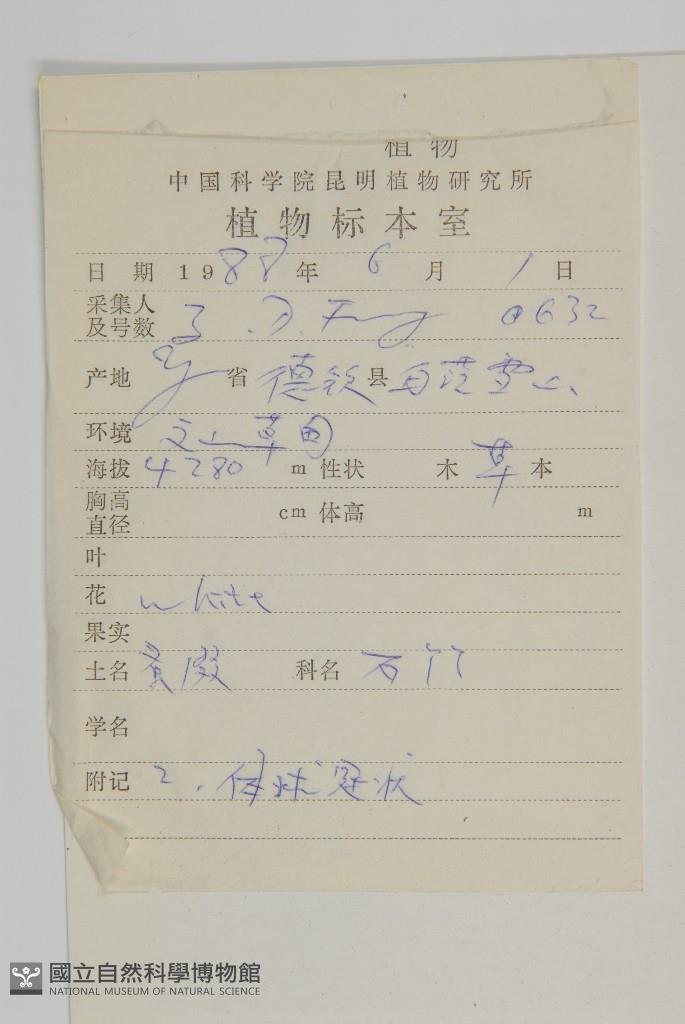 植物
中国科学院昆明植物研究所
植物标本室
日 期 1988 年 6 月 1 日
采集人
及号数 0632
产地 省 德钦 县 白茫雪山
环境 草甸
海拔 4280 m 性状 木 草 本
胸高
直径 cm 体高 m
叶
花 white
果实
土名 蚤缀 科名 石竹
学名
附记 2. 体球冠状
國立自然科學博物館
NATIONAL MUSEUM OF NATURAL SCIENCE